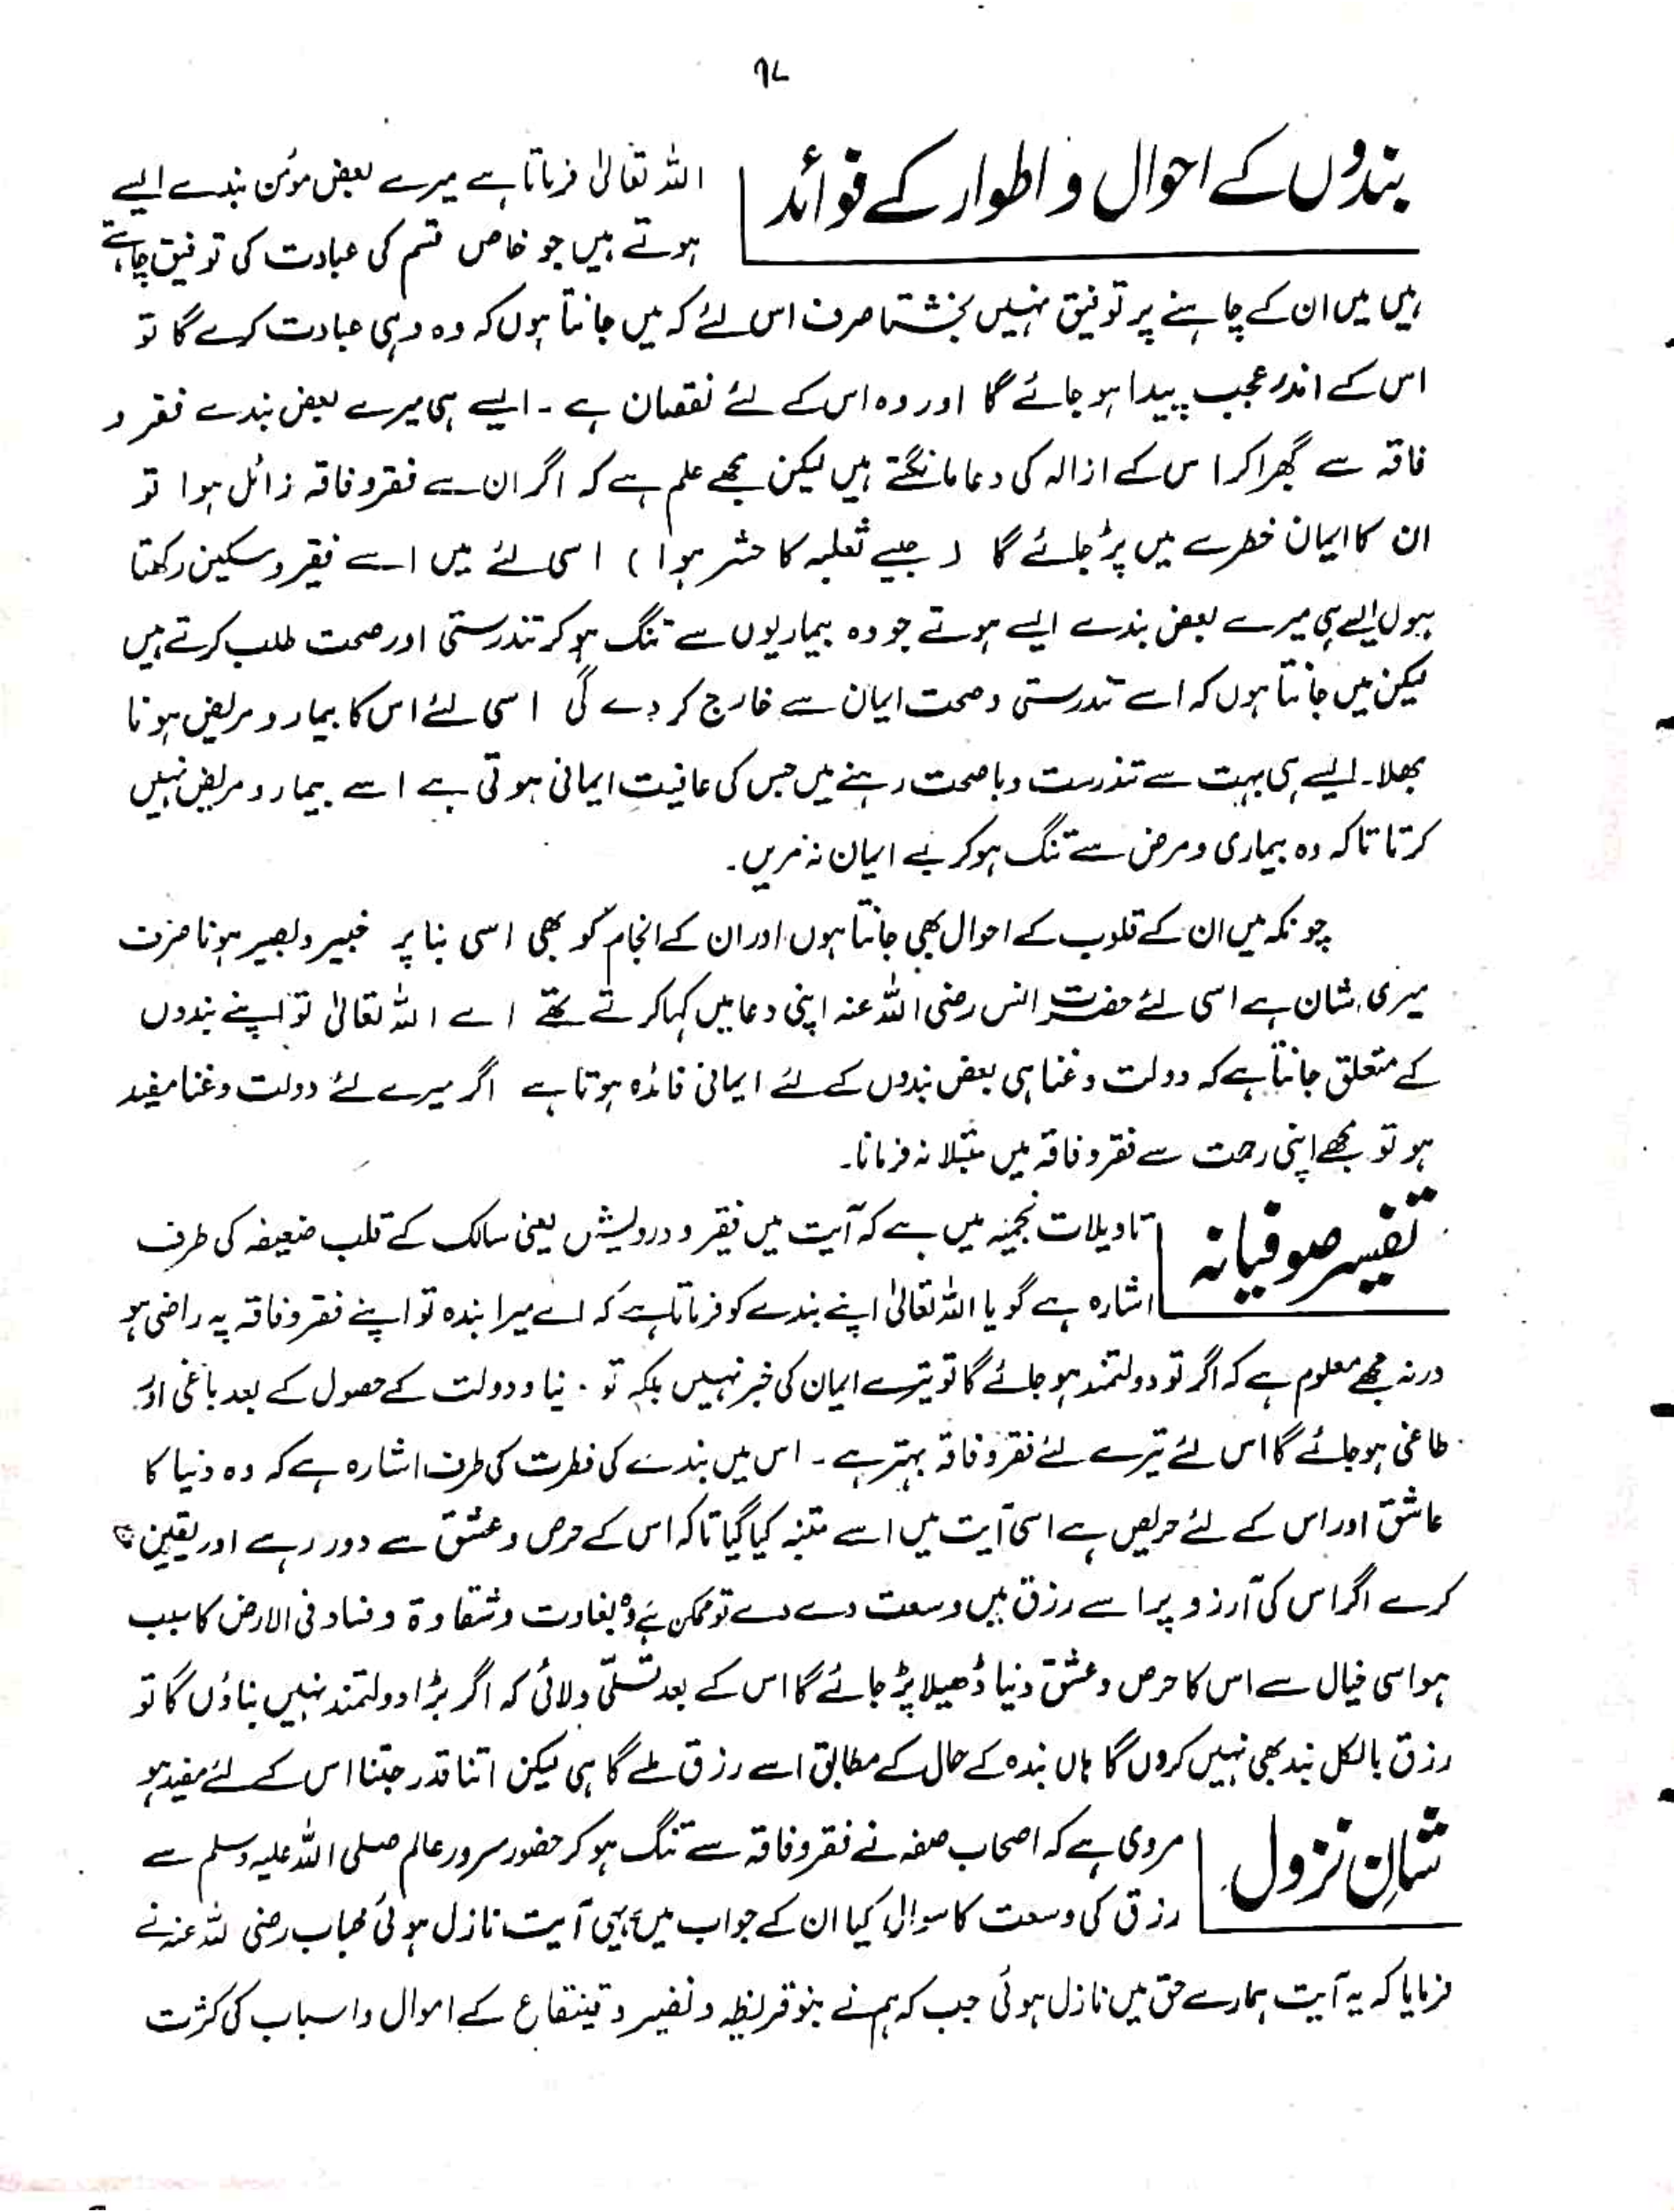 ۹۷
بندوں کے احوال و اطوار کے فوائد
اللہ تعالیٰ فرماتا ہے میرے بعض مؤمن بندے ایسے
ہوتے ہیں جو خاص قسم کی عبادت کی توفیق چاہتے
ہیں میں ان کے چاہنے پر توفیق نہیں بخشتا صرف اس لئے کہ میں جانتا ہوں کہ وہ وہی عبادت کرے گا تو
اس کے اندر عجب پیدا ہو جائے گا اور وہ اس کے لئے نقصان ہے ۔ ایسے ہی میرے بعض بندے فقر و
فاقہ سے گھبرا کر اس کے ازالہ کی دعا مانگتے ہیں لیکن مجھے علم ہے کہ اگر ان سے فقر و فاقہ زائل ہوا تو
ان کا ایمان خطرے میں پڑ جائے گا (جیسے ثعلبہ کا حشر ہوا) اسی لئے میں اسے فقیر و مسکین رکھتا
ہوں ایسے ہی میرے بعض بندے ایسے ہوتے جو وہ بیماریوں سے تنگ ہو کر تندرستی اور صحت طلب کرتے ہیں
لیکن میں جانتا ہوں کہ اسے تندرستی و صحت ایمان سے خارج کر دے گی اسی لئے اس کا بیمار و مریض ہونا
بھلا۔ ایسے ہی بہت سے تندرست و باصحت رہنے میں جس کی عافیت ایمانی ہوتی ہے اسے بیمار و مریض نہیں
کرتا تاکہ وہ بیماری و مرض سے تنگ ہو کر بے ایمان نہ مریں۔
چونکہ میں ان کے قلوب کے احوال بھی جانتا ہوں اور ان کے انجام کو بھی اسی بنا پر خبیر و بصیر ہونا صرف
میری شان ہے اسی لئے حضرت انس رضی اللہ عنہ اپنی دعا میں کہا کرتے تھے اے اللہ تعالیٰ تو اپنے بندوں
کے متعلق جانتا ہے کہ دولت و غنا ہی بعض بندوں کے لئے ایمانی فائدہ ہوتا ہے اگر میرے لئے دولت و غنا مفید
ہو تو مجھے اپنی رحمت سے فقر و فاقہ میں مبتلا نہ فرمانا۔
تفسیر صوفیانہ
تاویلات نجمیہ میں ہے کہ آیت میں فقیر و درویش یعنی سالک کے قلب ضعیفہ کی طرف
اشارہ ہے گویا اللہ تعالیٰ اپنے بندے کو فرماتا ہے کہ اے میرا بندہ تو اپنے فقر و فاقہ پہ راضی ہو
ورنہ مجھے معلوم ہے کہ اگر تو دولتمند ہو جائے گا تو تیرے ایمان کی خبر نہیں بلکہ تو دنیا و دولت کے حصول کے بعد باغی اور
طاغی ہو جائے گا اس لئے تیرے لئے فقر و فاقہ بہتر ہے ۔ اس میں بندے کی فطرت کی طرف اشارہ ہے کہ وہ دنیا کا
عاشق اور اس کے لئے حریص ہے اسی آیت میں اسے متنبہ کیا گیا تاکہ اس کے حرص و عشق سے دور رہے اور یقین
کرے اگر اس کی آرزو پر اسے رزق میں وسعت دے دے تو ممکن ہے وہ بغاوت و شقاوۃ و فساد فی الارض کا سبب
ہو اسی خیال سے اس کا حرص و عشق دنیا ڈھیلا پڑ جائے گا اس کے بعد تسلّی دلائی کہ اگر بڑا دولتمند نہیں بناؤں گا تو
رزق بالکل بند بھی نہیں کروں گا ہاں بندہ کے حال کے مطابق اسے رزق ملے گا ہی لیکن اتنا قدر جتنا اس کے لئے مفید ہو
شانِ نزول
مروی ہے کہ اصحاب صفہ نے فقر و فاقہ سے تنگ ہو کر حضور سرور عالم صلی اللہ علیہ وسلم سے
رزق کی وسعت کا سوال کیا ان کے جواب میں یہی آیت نازل ہوئی خباب رضی اللہ عنہ نے
فرمایا کہ یہ آیت ہمارے حق میں نازل ہوئی جب کہ ہم نے بنو قریظہ و نضیر و قینقاع کے اموال و اسباب کی کثرت